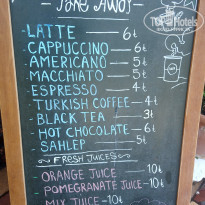 TAKE AWAY
LATTE — 6₺
CAPPUCCINO — 6₺
AMERICANO — 5₺
MACCHIATO — 5₺
ESPRESSO — 4₺
TURKISH COFFEE — 4₺
BLACK TEA — 3₺
HOT CHOCOLATE — 6₺
SAHLEP — 5₺
FRESH JUICES
ORANGE JUICE — 10₺
POMEGRANATE JUICE — 10₺
MIX JUICE — 10₺
TopHotels